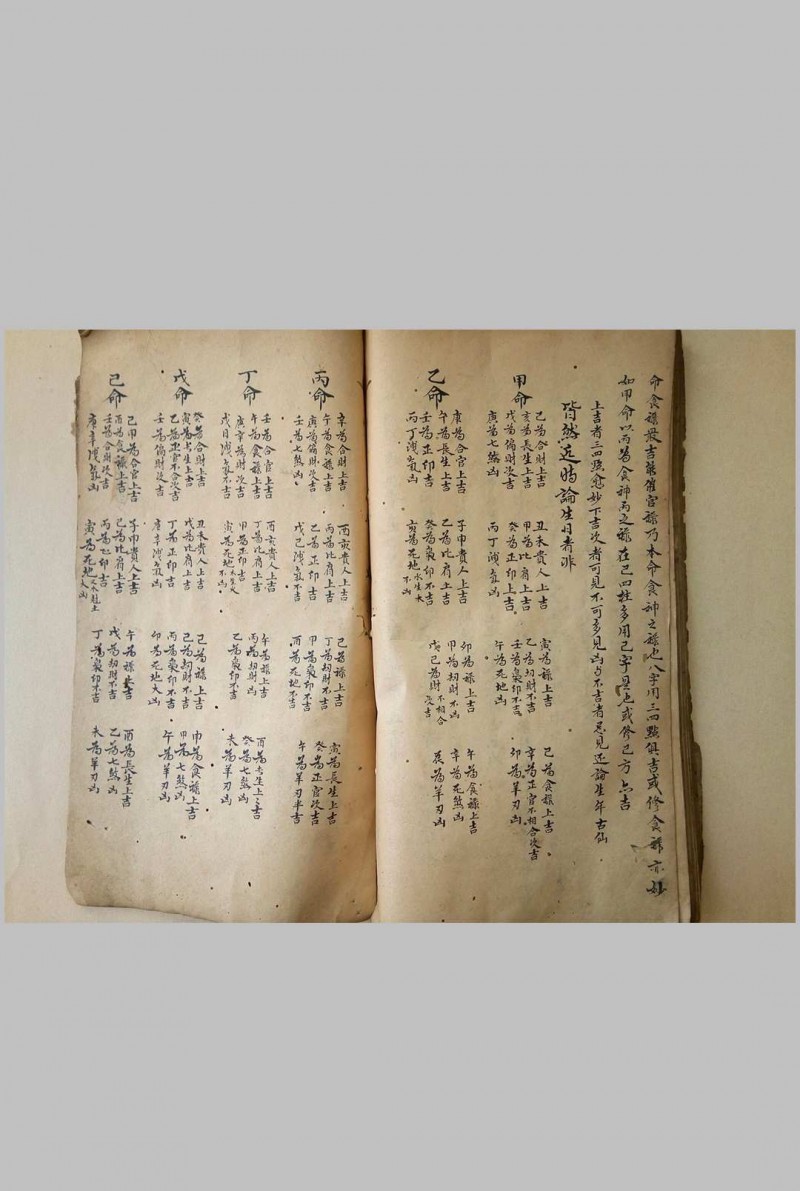 命食祿最吉葉催官祿乃本命食神之祿也八字用三四點俱吉或修食祿亦妙
如甲命以丙為食神丙之祿在巳四柱多用巳字是也或修巳方亦吉
上吉者三四點愈妙下吉次者可見不可多見凶与不吉者忌見还論生年古仙
皆然近時論生日者非
甲命
己為合財上吉
亥為長生上吉
戊為偏財次吉
庚為七煞凶
丑未貴人上吉
甲為比肩上吉
癸為正印上吉
丙丁洩氣凶
寅為祿上吉
乙為刼財不吉
壬為梟印不吉
午為死地凶
巳為食祿上吉
辛為正官不相合次吉
卯為羊刃凶
乙命
庚為合官上吉
午為長生上吉
壬為正印吉
丙丁洩氣凶
子申貴人上吉
乙為比肩上吉
癸為梟印吉
亥為死地水生木不凶
卯為祿上吉
甲為刼財不凶
戊己為財不相合次吉
午為食祿上吉
辛為死煞凶
辰為羊刃凶
丙命
辛為合財上吉
午為食祿上吉
庚為偏財次吉
壬為七煞凶
酉亥貴人上吉
丙為比肩上吉
乙為正印吉
戊己洩氣不吉
巳為祿上吉
丁為刼財不吉
甲為梟印不吉
酉為死地不吉
寅為長生上吉
癸為正官次吉
午為羊刃半吉
丁命
壬為合官上吉
午為食祿上吉
庚辛為財次吉
戊己洩氣不凶
酉亥貴人上吉
丁為比肩上吉
甲為正印吉
寅為死地木生火不凶
午為祿上吉
丙為刼財凶
乙為梟印不吉
酉為長生上吉
癸為七煞凶
未為羊刃凶
戊命
癸為合財上吉
寅為長生上吉
乙為正官不合次吉
壬為偏財次吉
丑未貴人上吉
戊為比肩上吉
丁為正印吉
庚辛洩氣凶
巳為祿上吉
己為刼財不吉
丙為梟印不吉
卯為死地大凶
申為食祿上吉
甲為七煞凶
午為羊刃凶
己命
己甲為合官上吉
酉為食祿上吉
壬為合財次吉
庚辛洩氣凶
子申貴人上吉
己為比肩上吉
丙為正印吉
寅為死地木尅土大凶
午為祿上吉
戊為刼財不吉
丁為梟印不吉
酉為長生上吉
乙為七煞凶
未為羊刃凶